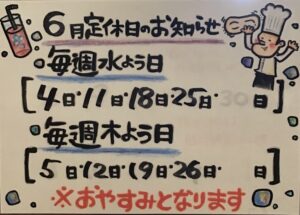 6月定休日のお知らせ
・毎週水よう日
[4日・11日・18日25日・ 日]
・毎週木よう日
[5日・12日・19日・26日・ 日]
※おやすみとなります